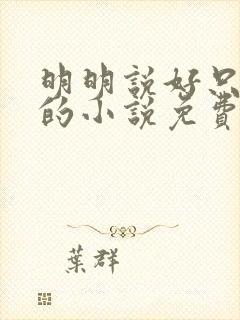 明明説好只
的小説免費
葉群